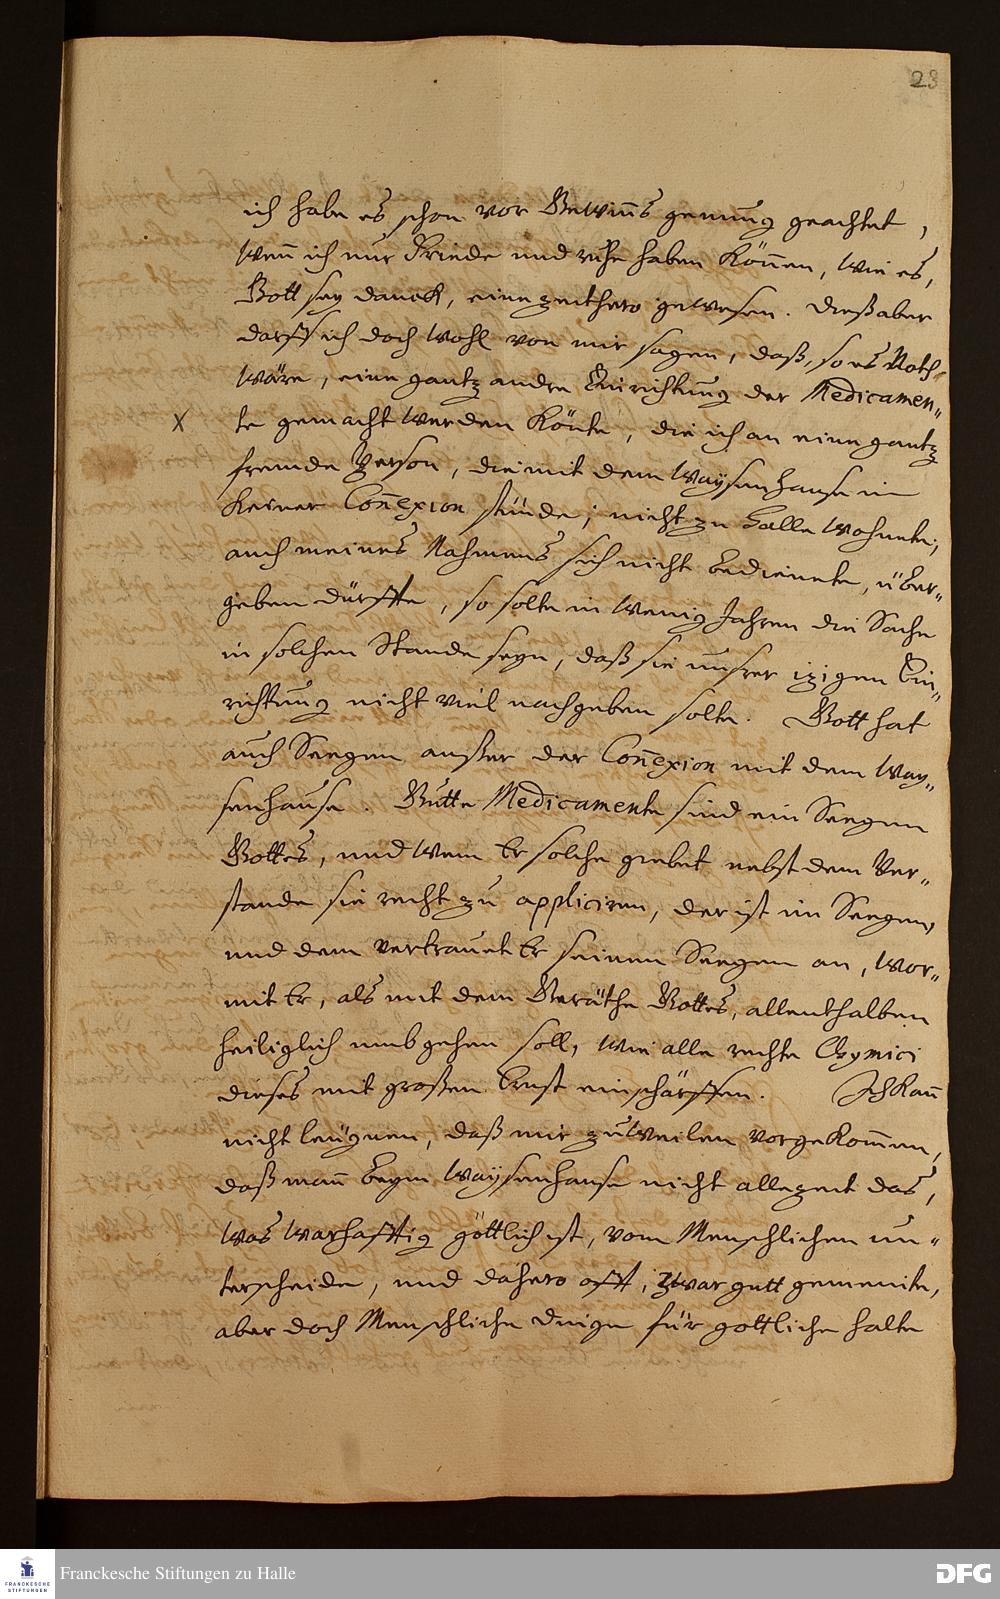 23
ich habe es schon vor Gewinns genung geachtet,
wenn ich nur Friede und ruhe haben können, wie es,
Gott sey danck, eine zeithero gewesen. Dieß aber
darff ich doch wohl von mir sagen, daß, so es Noth
wäre, eine gantz andre Einrichtung der Medicamen„
X te gemacht werden könte, die ich an eine gantz
fremde Person, die mit dem Waysenhause in
keiner Connexion stünde, nicht zu Halle wohnete,
auch meines Nahmens sich nicht bedienete, über„
geben dürffte, so solte in wenig Jahren die Sache
in solchen Stande seyn, daß sie unsrer izigen Ein„
richtung nicht viel nachgeben solte. Gott hat
auch Seegen außer der Connexion mit dem Way„
senhause. Gutte Medicamente sind ein Seegen
Gottes, und wem Er solche giebet nebst dem Ver„
stande sie recht zu appliciren, der ist im Seegen,
und dem vertrauet Er seinen Seegen an, wor„
mit Er, als mit dem Geräthe Gottes, allenthalben
heiliglich umbgehen soll, wie alle rechte Chymici
dieses mit großen Ernst einschärffen. Ich kann
nicht leugnen, daß mir zuweilen vorgekommen,
daß mann beym Waysenhause nicht allezeit das,
was warhafftig göttlich ist, vom Menschlichen un„
terscheide, und dahero offt, zwar gutt gemeinte,
aber doch Menschliche dinge für göttliche halte
Franckesche Stiftungen zu Halle
FRANCKESCHE STIFTUNGEN
DFG